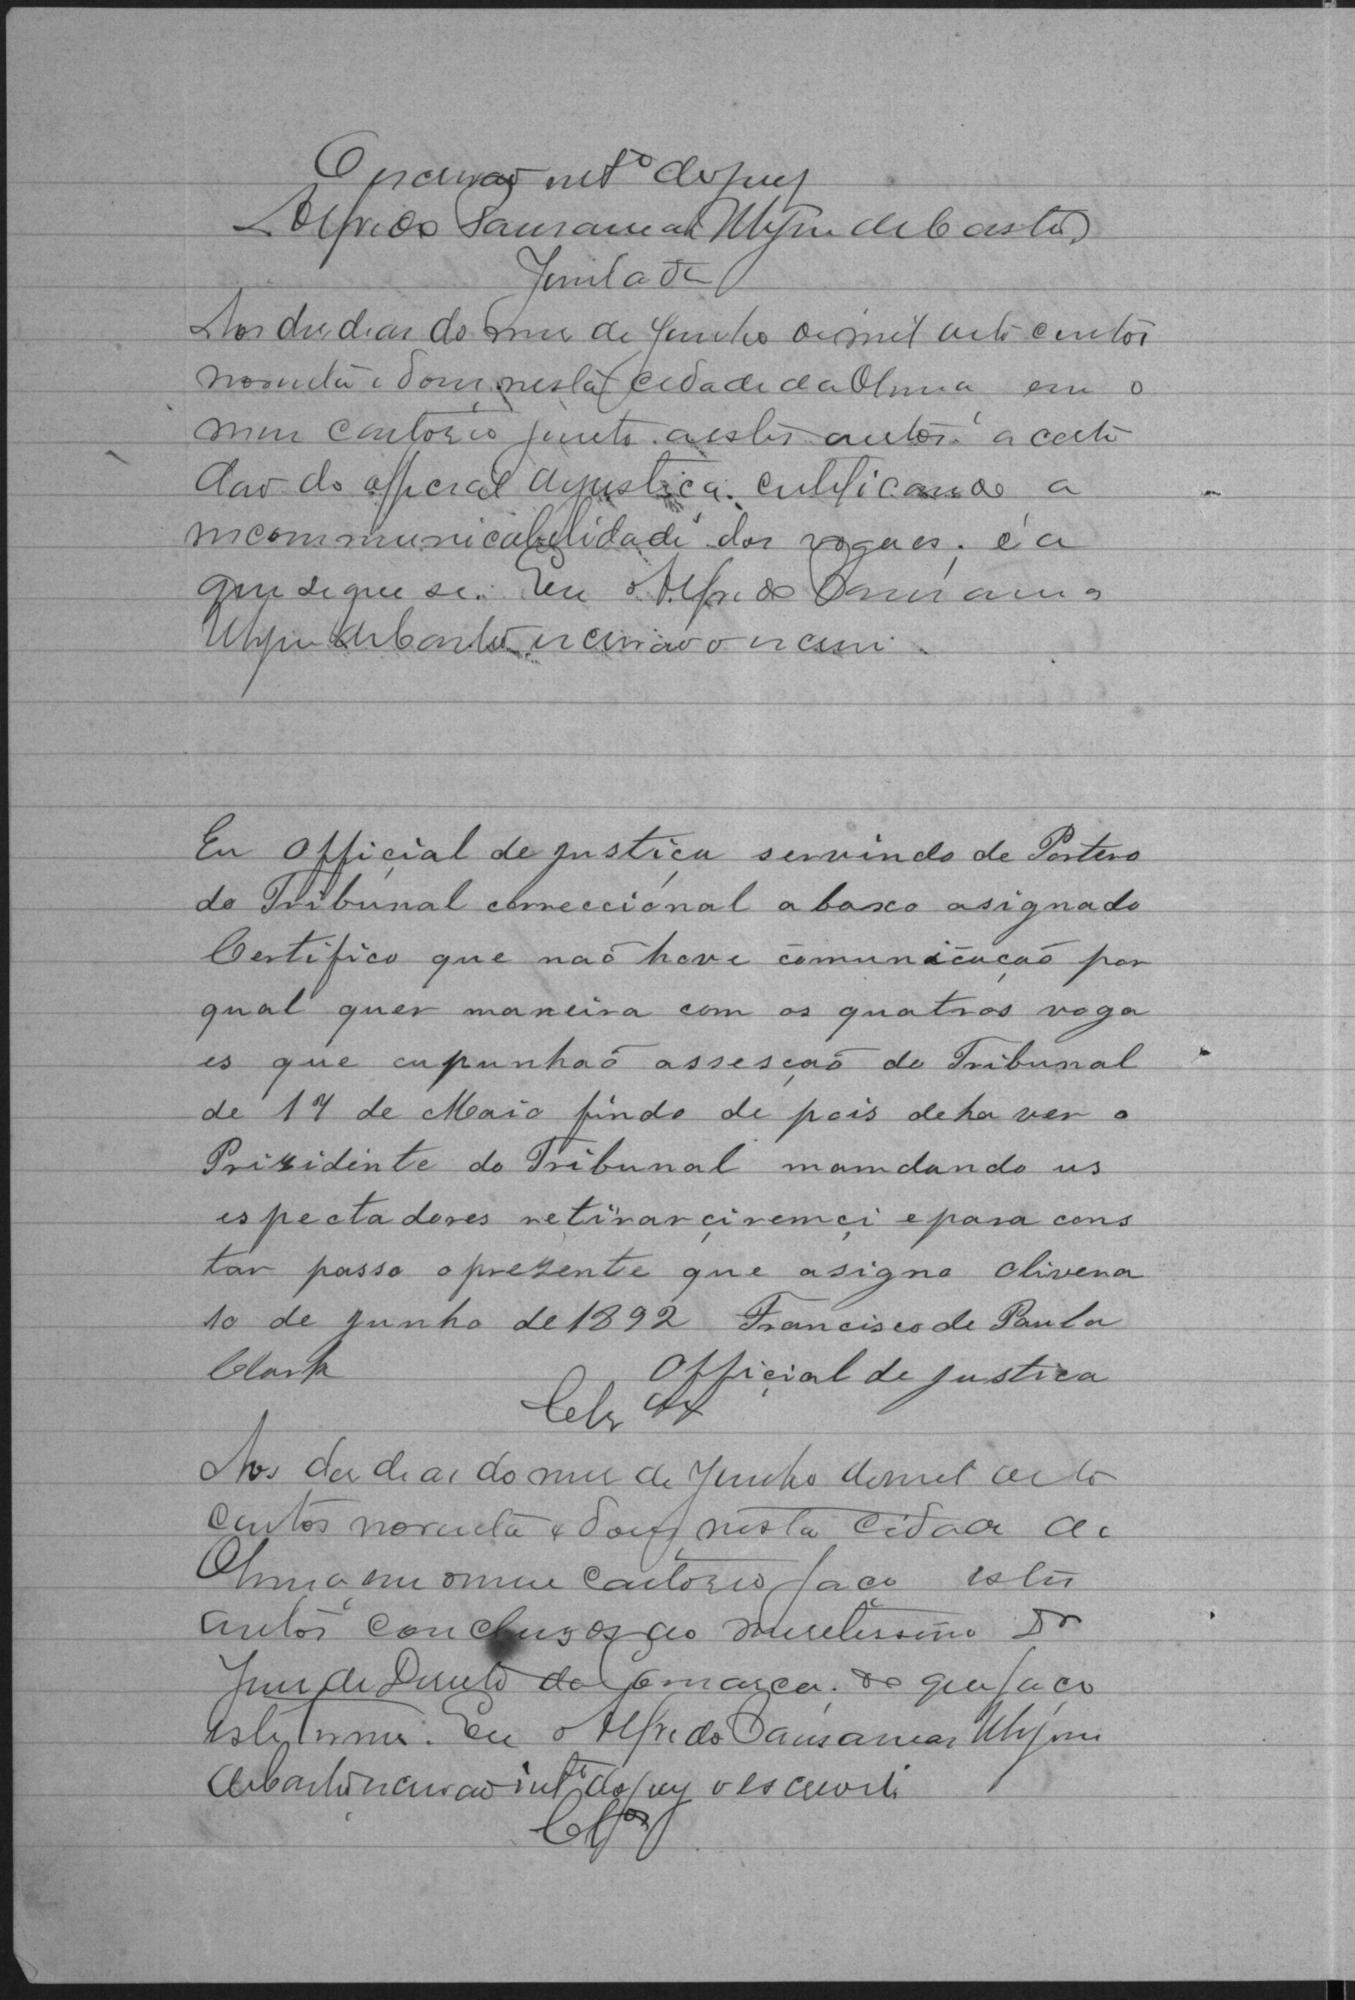 O escrivão int.º do jury
Alfredo Pausanias Ulyses de Castro
Juntada
Aos des dias do mes de Junho de mil oito centos
noventa e dous, nesta cidade da Oliveira em o
meu cartorio junto a estes autos a certi
dão do official de justiça certificando a
incommunicabilidade dos vogaes, e é a
que segue se. Eu Alfredo Pausanias
de Castro escrivão o escrevi.
Eu Official de justiça servindo de Portero
do Tribunal correccional abaxo asignado
Certifico que naõ hove comunicaçaõ por
qual quer maneira com os quatros voga
es que cupunhaõ assesçaõ do Tribunal
de 17 de Maio findo de pois deha ver o
Prisidente do Tribunal mamdando us
espectadores retirarçiremçi epara cons
tar passo oprezente que asigno Olivena
10 de junho de 1892 Francisco de Paula
Official de justica
Aos des dias do mes de Junho de mil oito
centos noventa e dous, nesta cidade de
Oliveira em o meu cartorio faço estes
autos conclusos ao meretissimo Dr
Juis de Direito da Comarca. do que faço
este termo. Eu Alfredo Pausanias
de Castro escrivão int.º do jury o escrevi